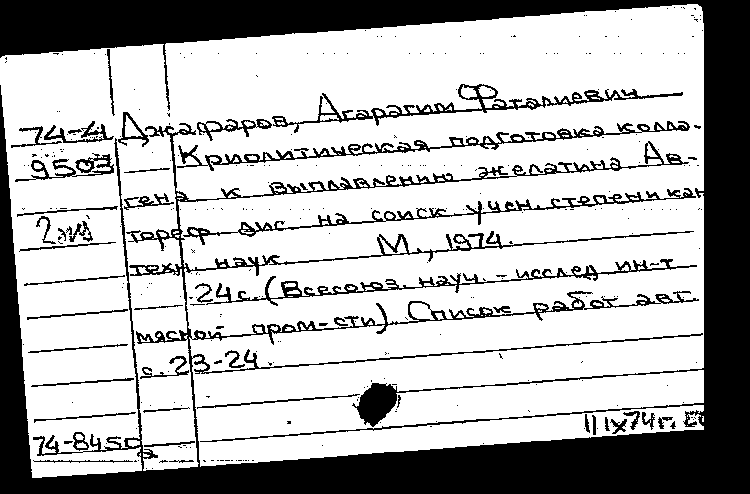 74-4 Джафаров, Агарагим Фаталиевич
9503 Криолитическая подготовка колла-
гена к выплавлению желатина Ав-
2экз тореф. дис. на соиск учен. степени кан
техн. наук. М., 1974.
24 с. (Всесоюз. науч. - исслед ин-т
мясной пром-сти). Список работ авт.
с. 23-24.
11 IX 74 г.
74-845